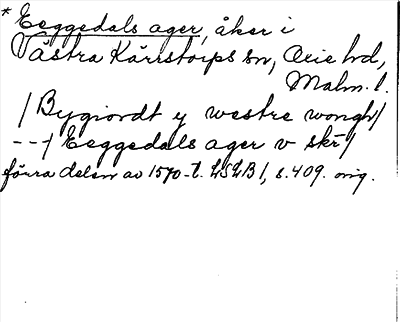 * Eeggedals ager, åker i
Västra Kärrstorps sn, Oxie hd,
Malm. l.
/ Bygiordt y westre wongh /
--- / Eeggedals ager v skr /
förra delen av 1570-t. LSLB 1, s. 409. orig.